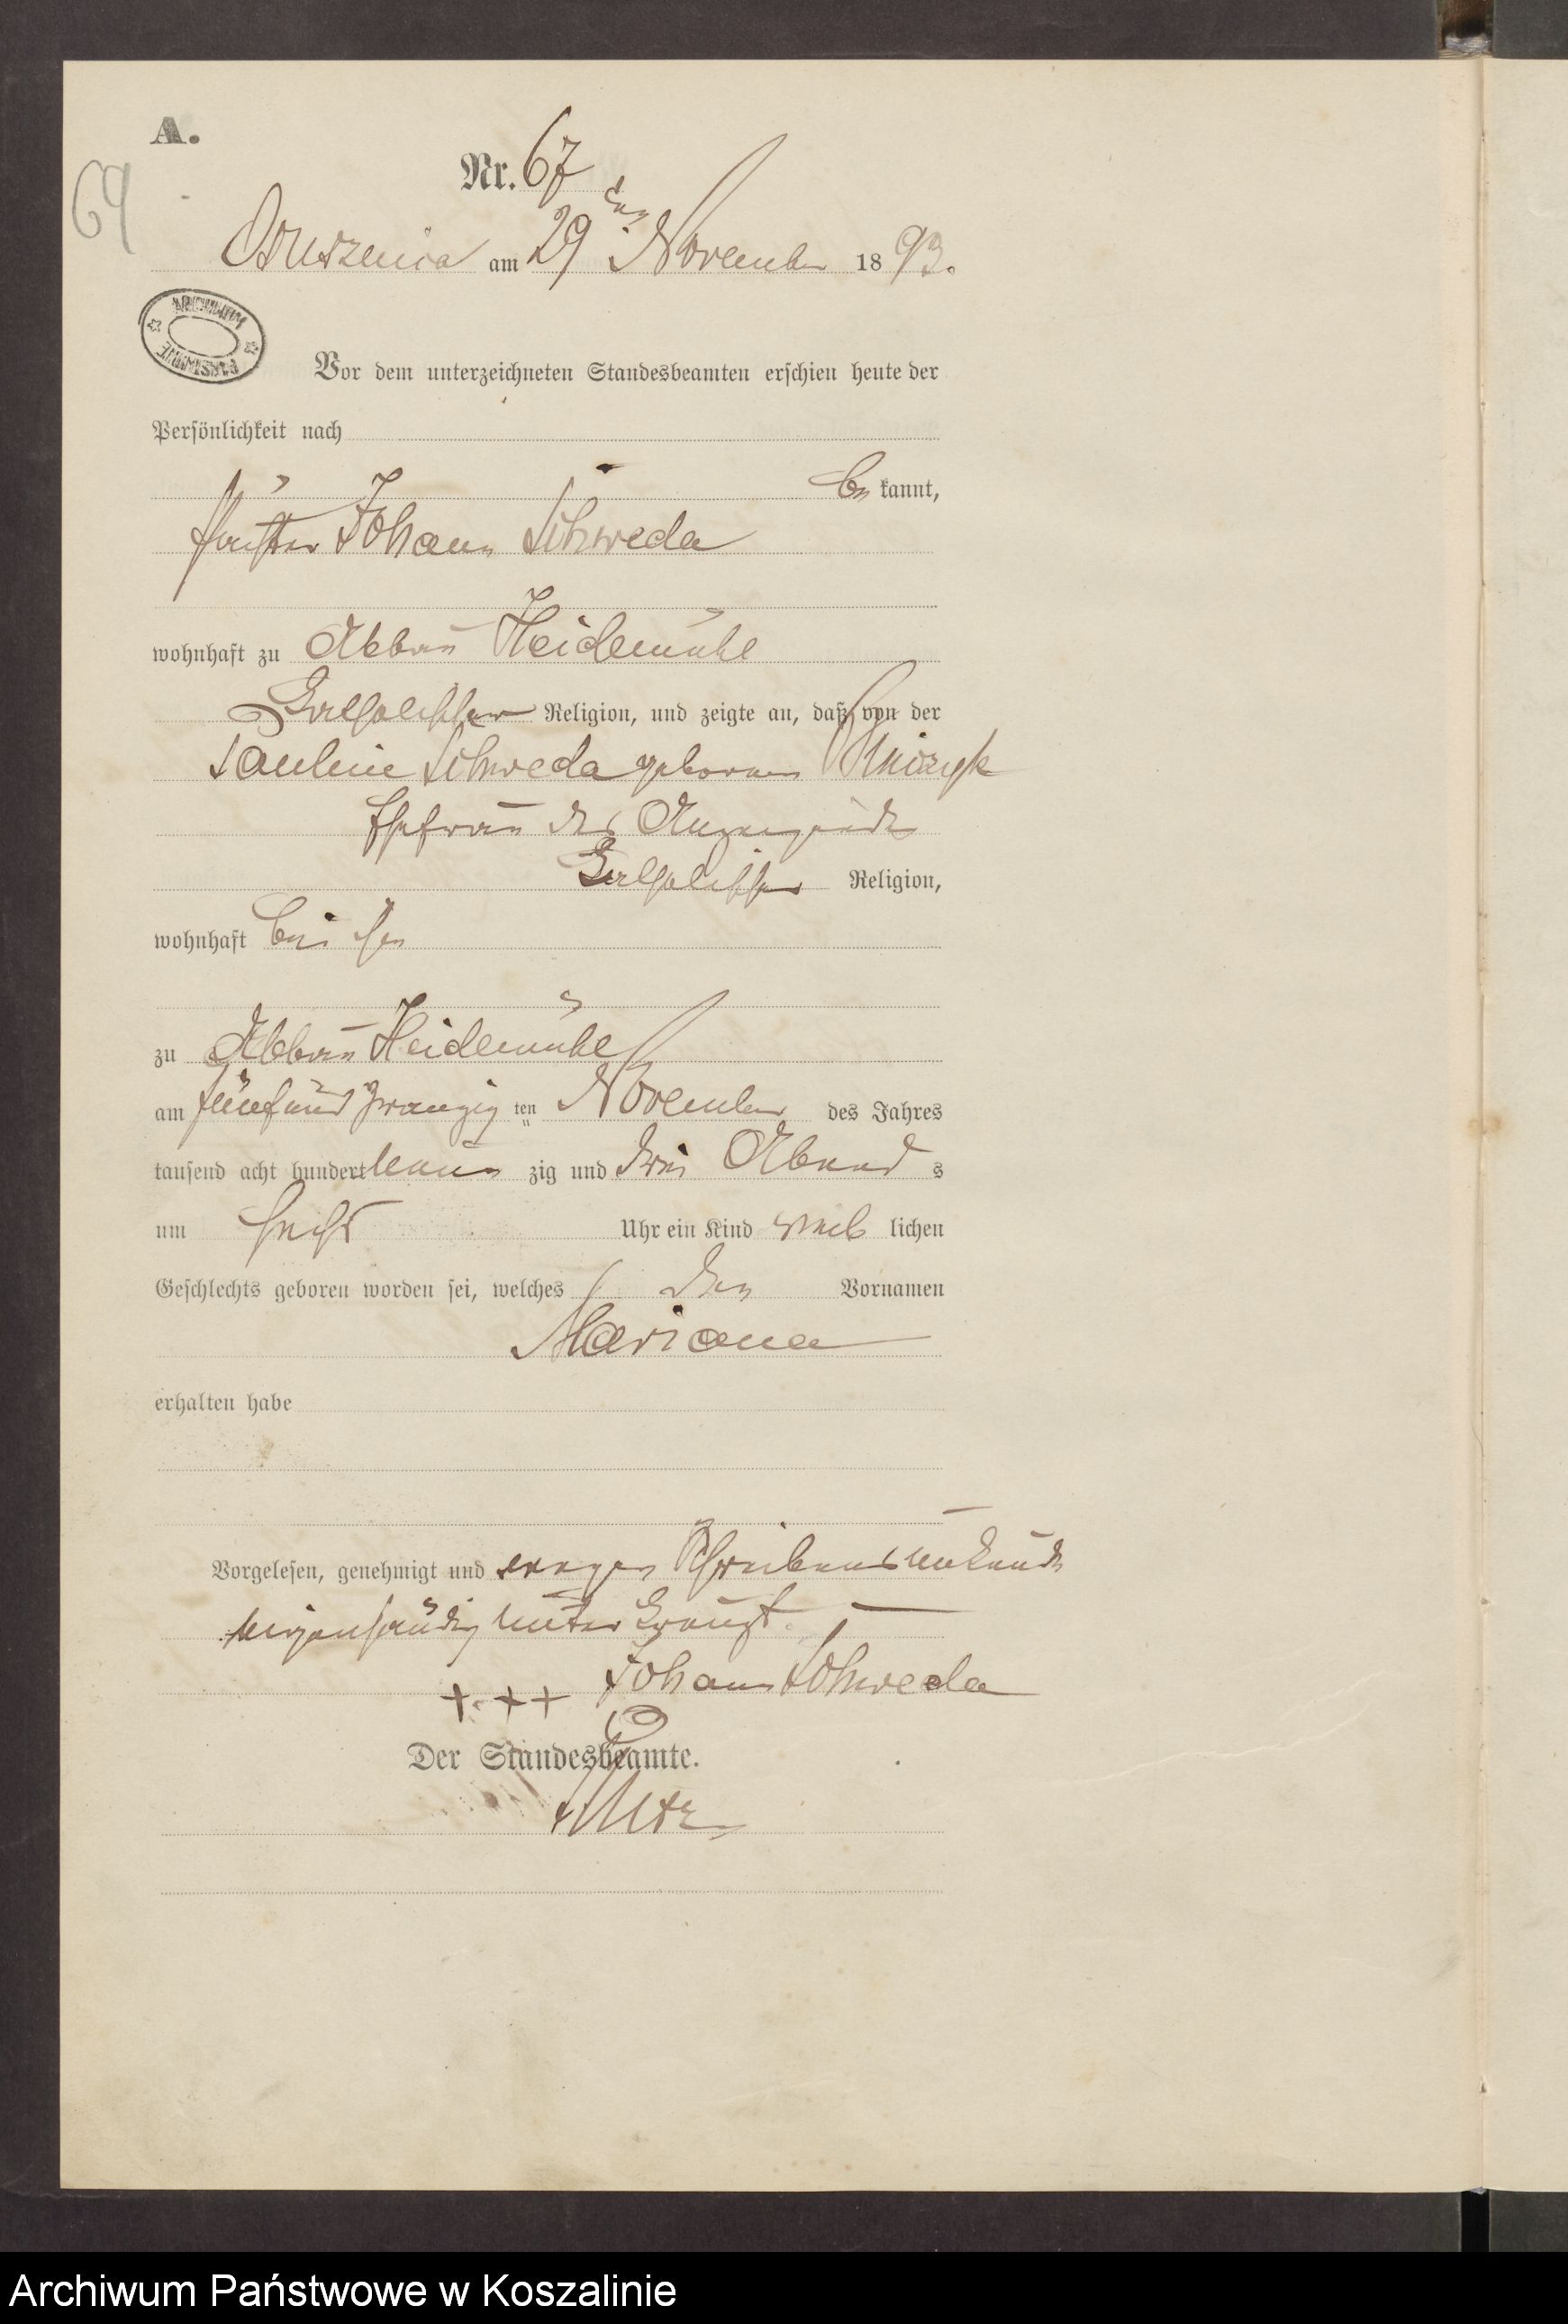 A.
64
Nr. 67
Ossuszenica am 29 ten November 1893.
ARCHIWUM PAŃSTWOWE
Vor dem unterzeichneten Standesbeamten erschien heute der
Persönlichkeit nach
be kannt,
Johann Schweda
wohnhaft zu Abbau Heidemühl
katholischer Religion, und zeigte an, daß von der
Pauline Schweda geborenen
Ehefrau des Anzeigenden
katholischer Religion,
wohnhaft bei ihm
zu Abbau Heidemühl
am fünf und zwanzig ten November des Jahres
tausend acht hundert neun zig und drei Abend s
um sechs Uhr ein Kind weib lichen
Geschlechts geboren worden sei, welches den Vornamen
Mariana
erhalten habe
Vorgelesen, genehmigt und wegen Schreibensunkunde
eigenhändig unterkreuzt. —
+ + + Johann Schweda
Der Standesbeamte.
Archiwum Państwowe w Koszalinie